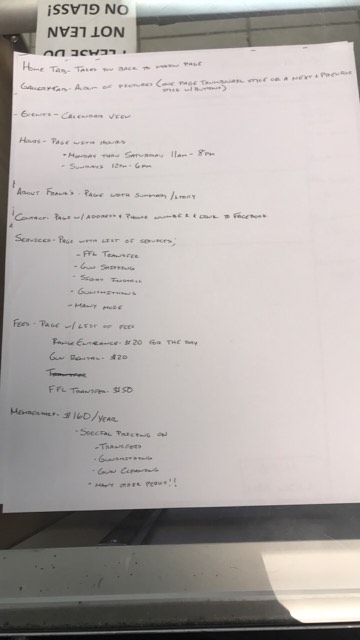 PLEASE DO
NOT LEAN
ON GLASS!
Home Tab - Takes you back to main page
Gallery Tab - Album of pictures (one page thumbnail style or a next & previous
style w/ buttons)
- Events - Calendar view
Hours - Page with hours
- Monday thru Saturday 11am - 8pm
- Sundays 12pm - 6pm
About Frank's - Page with summary/story
Contact - Page w/ address & phone number & link to Facebook
Services - Page with list of services;
- FFL Transfer
- Gun Shipping
- Sight Install
- Gunsmithing
- Many more
Fees - Page w/ list of fees
Range Entrance - $20 for the day
Gun Rental - $20
Transfer
FFL Transfer - $50
Membership - $160/year
- Special pricing on
- Transfers
- Gunsmithing
- Gun Cleaning
- Many other perks!!